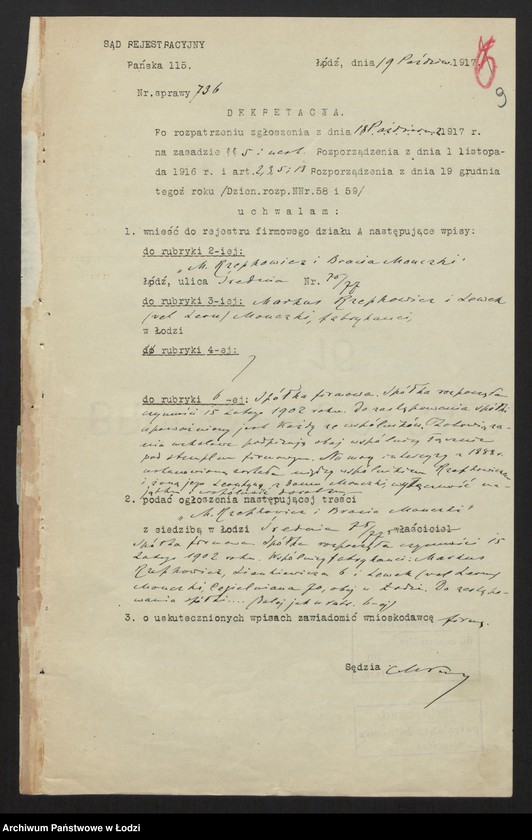 SĄD REJESTRACYJNY
Pańska 115.
Łódź, dnia 19 Paździer. 1917
9
Nr. sprawy 736
DEKRETACJA.
Po rozpatrzeniu zgłoszenia z dnia 18 Październ. 1917 r.
na zasadzie §§ 5 i nast. Rozporządzenia z dnia 1 listopa-
da 1916 r. i art. 2, Rozporządzenia z dnia 19 grudnia
tegoż roku /Dzien.rozp.NNr.58 i 59/
uchwalam:
1. wnieść do rejestru firmowego działu A następujące wpisy:
do rubryki 2-iej:
"M. Rzepkowicz i Bracia Monczki"
Łódź, ulica Średnia Nr. 75/77
do rubryki 3-iej: Markus Rzepkowicz i Lewek
(vel Leon) Monczki, fabrykanci,
w Łodzi
do rubryki 4-ej:
do rubryki 6 -ej: Spółka firmowa. Spółka rozpoczęła
czynności 15 Lutego 1902 roku. Do zastępowania spółki
upoważniony jest każdy ze wspólników. Zobowiąza-
nia wekslowe podpisują obaj wspólnicy łącznie
pod stemplem firmowym. Na mocy intercyzy z 1888 r.
ustanowioną została między wspólnikiem Rzepkowiczem
i żoną jego z domu Monczki wyłączność ma-
jątku i wspólność dorobku
2. podać ogłoszenia następującej treści
"M. Rzepkowicz i Bracia Monczki"
z siedzibą w Łodzi Średnia 75/77 właściciel
Spółka firmowa. Spółka rozpoczęła czynności 15
Lutego 1902 roku. Wspólnicy fabrykanci: Markus
Rzepkowicz, Sienkiewicza 6 i Lewek (vel Leon)
Monczki, Cegielniana 70, obaj w Łodzi. Do zastępo-
wania spółki.... (dalej jak w rubr. 6-ej)
3. o uskutecznionych wpisach zawiadomić wnioskodawcę firmę.
Sędzia
Archiwum Państwowe w Łodzi